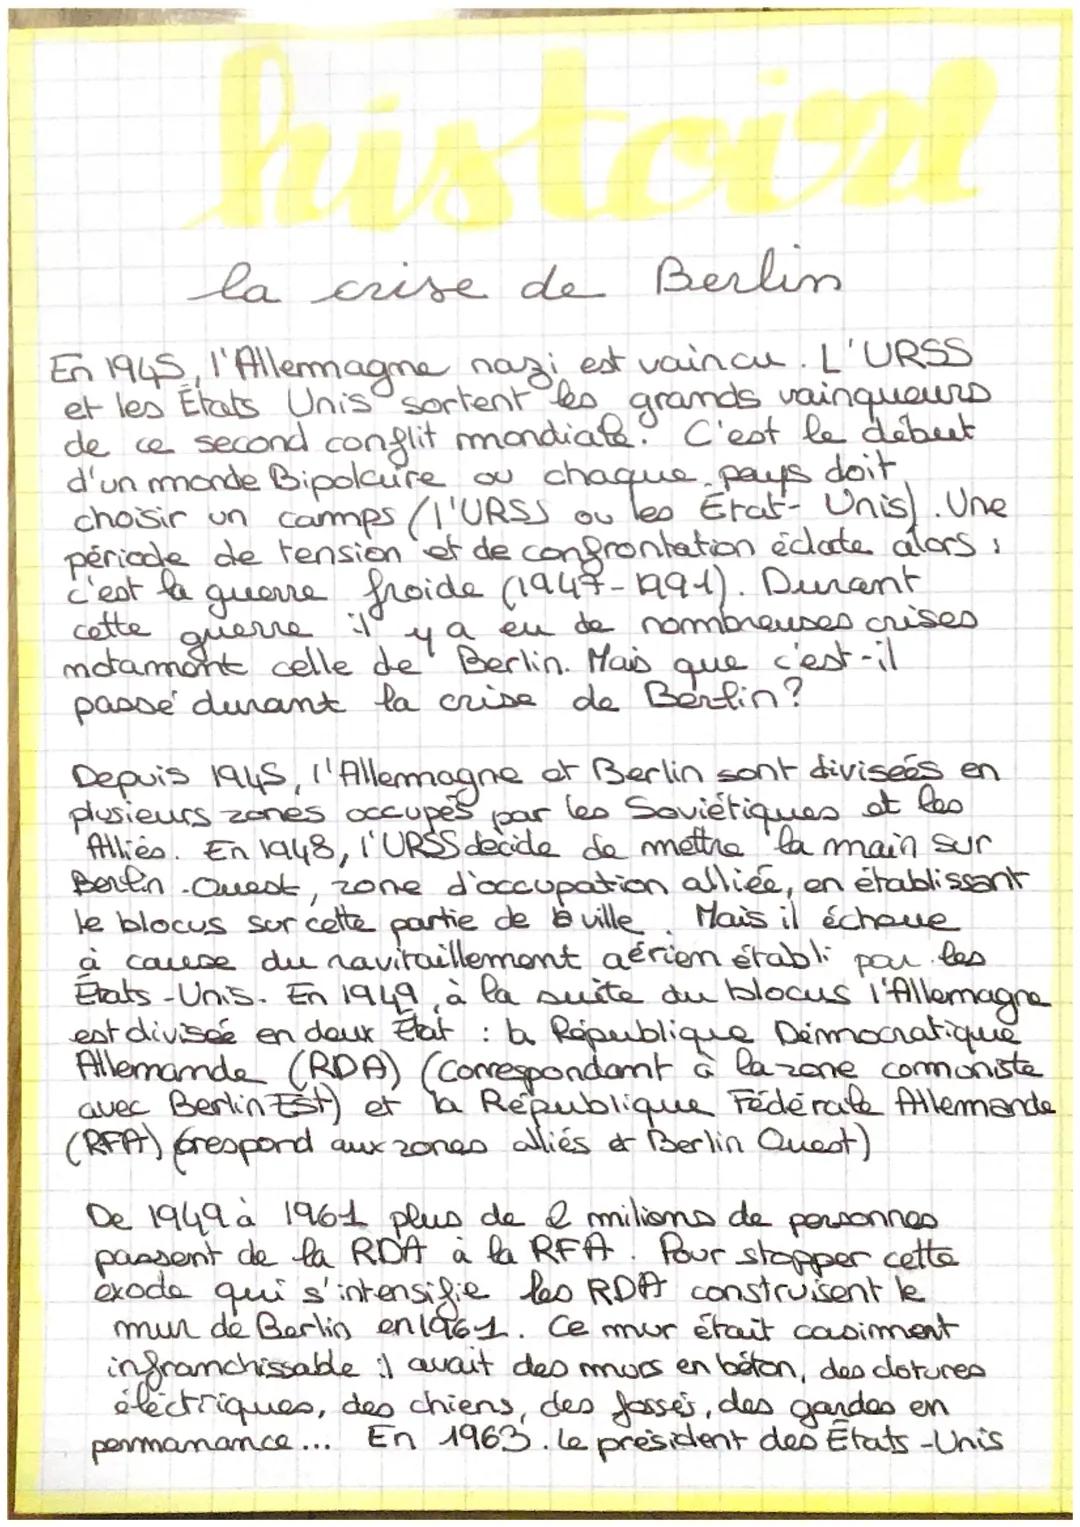 histoire
la crise de Berlin
En 1945, l'Allemagne nazi est vaincu. L'URSS
et les États Unis sortent les grands vainqueurs
de ce second conflit mondiale. C'est le début
d'un monde Bipolaire ou chaque pays doit
choisir un camps (l'URSS ou les État-Unis). Une
période de tension et de confrontation éclate alors :
c'est la guerre froide (1947-1991). Durant
cette guerre il y a eu de nombreuses crises
notamment celle de Berlin. Mais que c'est-il
passé durant la crise de Berlin?
Depuis 1945, l'Allemagne et Berlin sont divisées en
plusieurs zones occupés par les Soviétiques et les
Alliés. En 1948, l'URSS décide de mettre la main sur
Berlin-Ouest, zone d'occupation alliée, en établissant
le blocus sur cette partie de la ville. Mais il échoue
à cause du ravitaillement aérien établi par les
États-Unis. En 1949, à la suite du blocus l'Allemagne
est divisée en deux État : la République Démocratique
Allemande (RDA) (Correspondant à la zone comoniste
avec Berlin Est) et la République Fédérale Allemande
(RFA) (crespond aux zones alliés et Berlin Ouest)
De 1949 à 1961 plus de 2 milions de personnes
passent de la RDA à la RFA. Pour stopper cette
exode qui s'intensifie les RDA construisent le
mur de Berlin en 1961. Ce mur était casiment
infranchissable il avait des murs en béton, des clotures
éléctriques, des chiens, des fossés, des gardes en
permanance... En 1963. le président des États-Unis